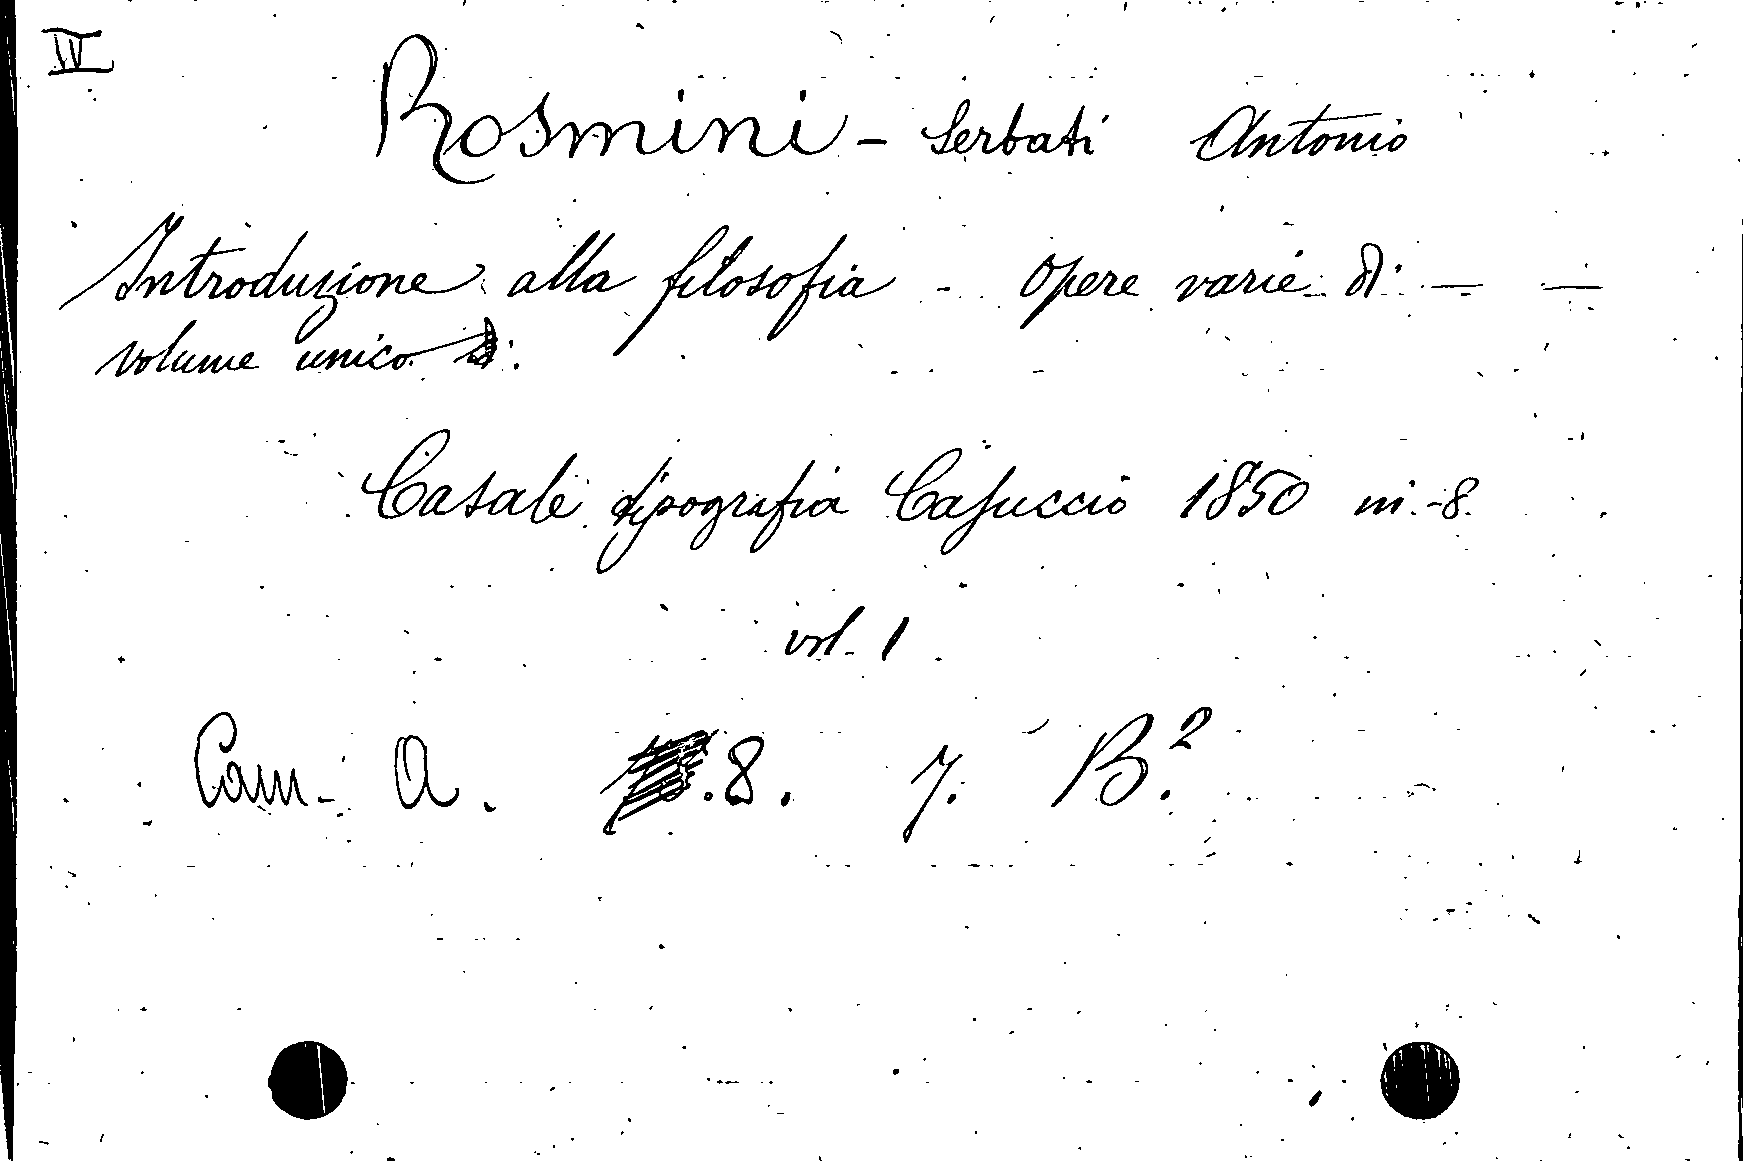 IV
Rosmini - Serbati Antonio
Introduzione alla filosofia - Opere varie di — —
volume unico
Casale tipografia Casuccio 1850 in-8.
vol. 1
Cam. A. .8. 7. B.²